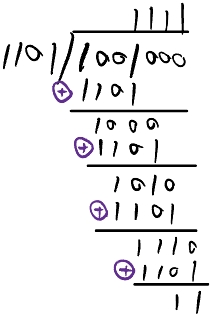 1111
1101/1001000
⊕1101
1000
⊕1101
1010
⊕1101
1110
⊕1101
11